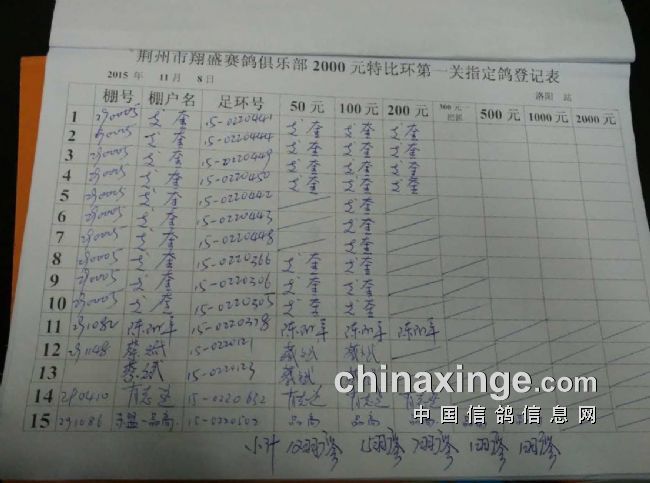 荆州市翔盛赛鸽俱乐部2000元特比环第一关指定鸽登记表
2015年 11月 8日 洛阳 站
棚号 棚户名 足环号 50元 100元 200元 300元 500元 1000元 2000元
1 290005 奎 15-0220441 奎 奎 奎
2 290005 奎 15-0220444 奎 奎 奎
3 290005 奎 15-0220449 奎 奎 奎
4 290005 奎 15-0220450 奎 奎 奎
5 290005 奎 15-0220442 奎
6 290005 奎 15-0220443 奎
7 290005 奎 15-0220448 奎
8 290005 奎 15-0220366 奎 奎
9 290005 奎 15-0220306 奎 奎
10 290005 奎 15-0220305 奎 奎
11 291082 陈 军 15-0220378 陈 军 陈 军 陈 军
12 291148 蔡斌 15-0220121 蔡斌 蔡斌
13 蔡斌 15-0220123 蔡斌 蔡斌
14 290410 肖志 15-0220632 肖志 肖志 肖志
15 291086 一品高 15-0220502 品高 品高 品高
小计 12羽 15羽 7羽 1羽 1羽
chinaxinge.com
中国信鸽信息网